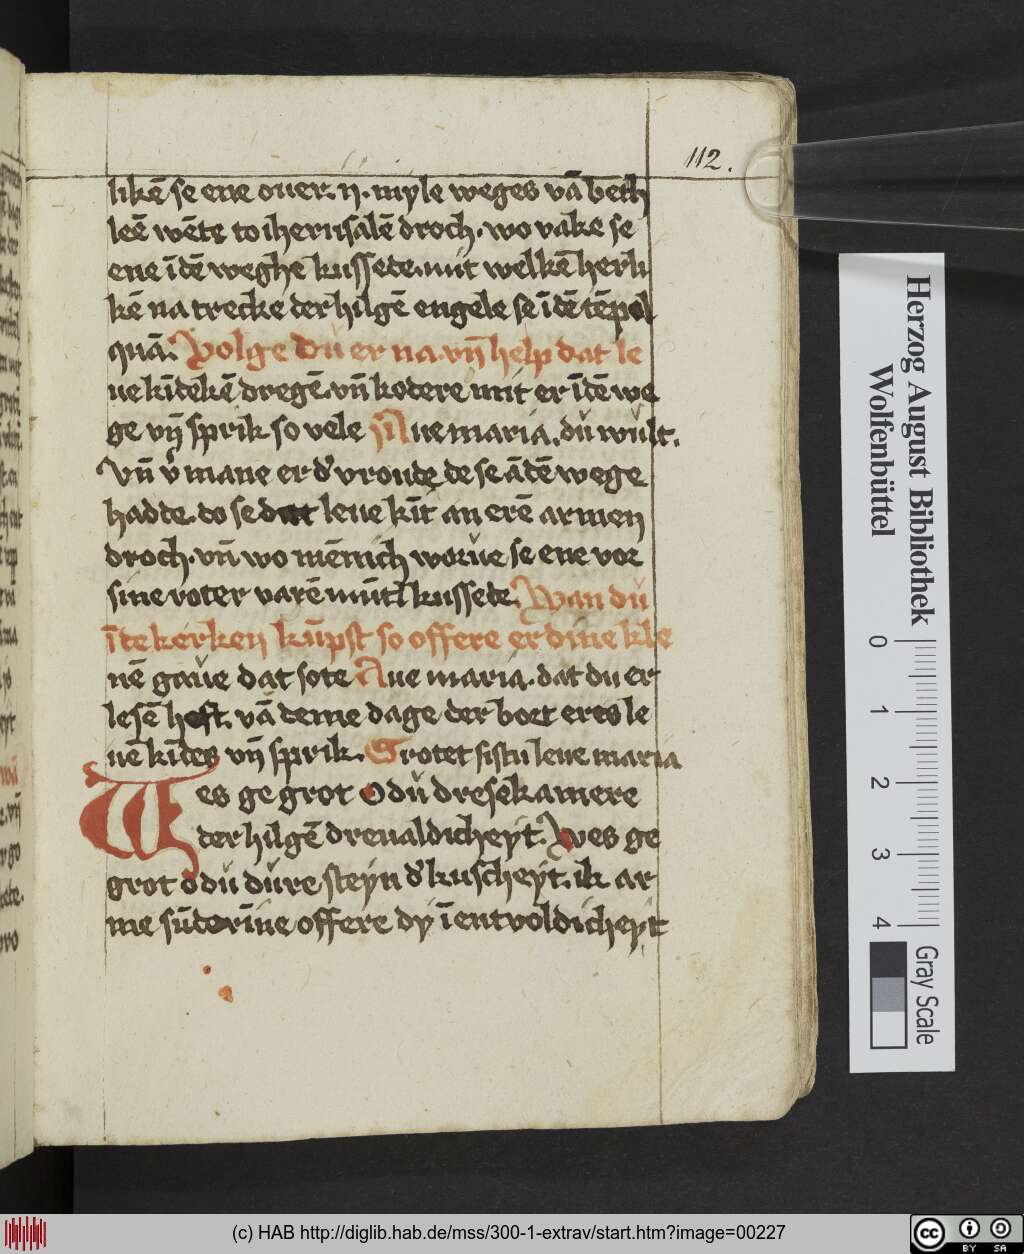 112.
likē se ene ouer .ij. myle weges vā beth
leē wēte to iherusalē droch. wo vake se
ene ī dē weghe kussede. mit welkē herli
kē na trecke der hilgē engele se ī dē tēpel
quā. Volge du er na. vn̄ help dat le
ue kīdekē dregē. vn̄ kodere mit er ī dē we
ge vn̄ sprik so vele Aue maria. dů wult.
Vn̄ v̄mane er d' vroude de se ā dē wege
hadde. do se dat leue kīt an erē armen
droch. vn̄ wo mēnich worue se ene vor
sine roter varē mūt kussede. Wan du
ī de kerken kūpst so offere er dine kle
nē gaue dat sote Aue maria. dat du er
lesē heft. vā deme dage der bort eres le
uē kīdes vn̄ sprik. Grotet sistu leue maria
Wes ge grot o du dresekamere
der hilgē dreualdicheyt. Wes ge
grot o du dure steyn d' kuscheyt. ik ar
me sūderīne offere dy ī entvoldicheyt
Herzog August Bibliothek
Wolfenbüttel
0 1 2 3 4
Gray Scale
(c) HAB http://diglib.hab.de/mss/300-1-extrav/start.htm?image=00227
cc BY SA